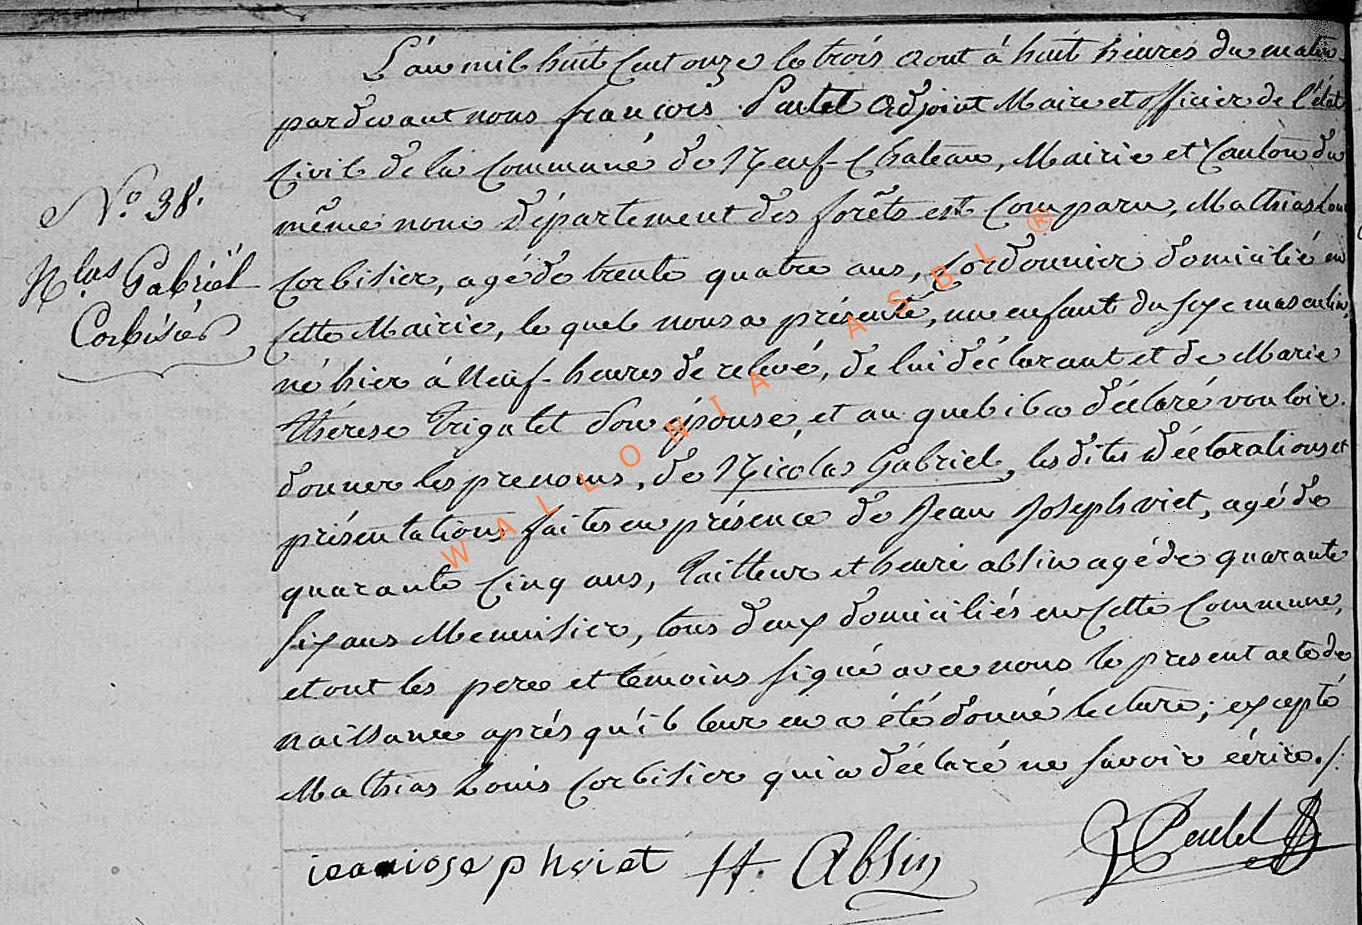 L'an mil huit Cent onze le trois aout à huit heures du matin
pardevant nous françois Paulet adjoint Maire et officier de l'état
Civil de la Commune de Neuf-Chateau, Mairie et Canton du
N.° 38.
même nom département des forêts est Comparu, Mathias Louis
N.las Gabriël
Corbisier, agé de trente quatre ans, Cordonnier domicilié en
Corbisier
Cette Mairie, le quel nous a présenté, un enfant du sexe masculin,
né hier à Neuf-heures de relevé, de lui déclarant et de Marie
thérese Trigalet son épouse, et au quel il a déclaré vouloir
donner les prenoms, de Nicolas Gabriel, les dites déclarations et
présentations faites en présence de Jean Joseph viet, agé de
quarante Cinq ans, Tailleur et henri absin agé de quarante
six ans Menuisier, tous deux domiciliés en Cette Commune,
et ont les pere et témoins signé avec nous le present acte de
naissance aprés qu'il leur en a été donné lecture; excepté
Mathias Louis Corbisier qui a déclaré ne savoir écrire./.
jean iosep h viet H. Absin Paulet
WALLONIA ASBL ®